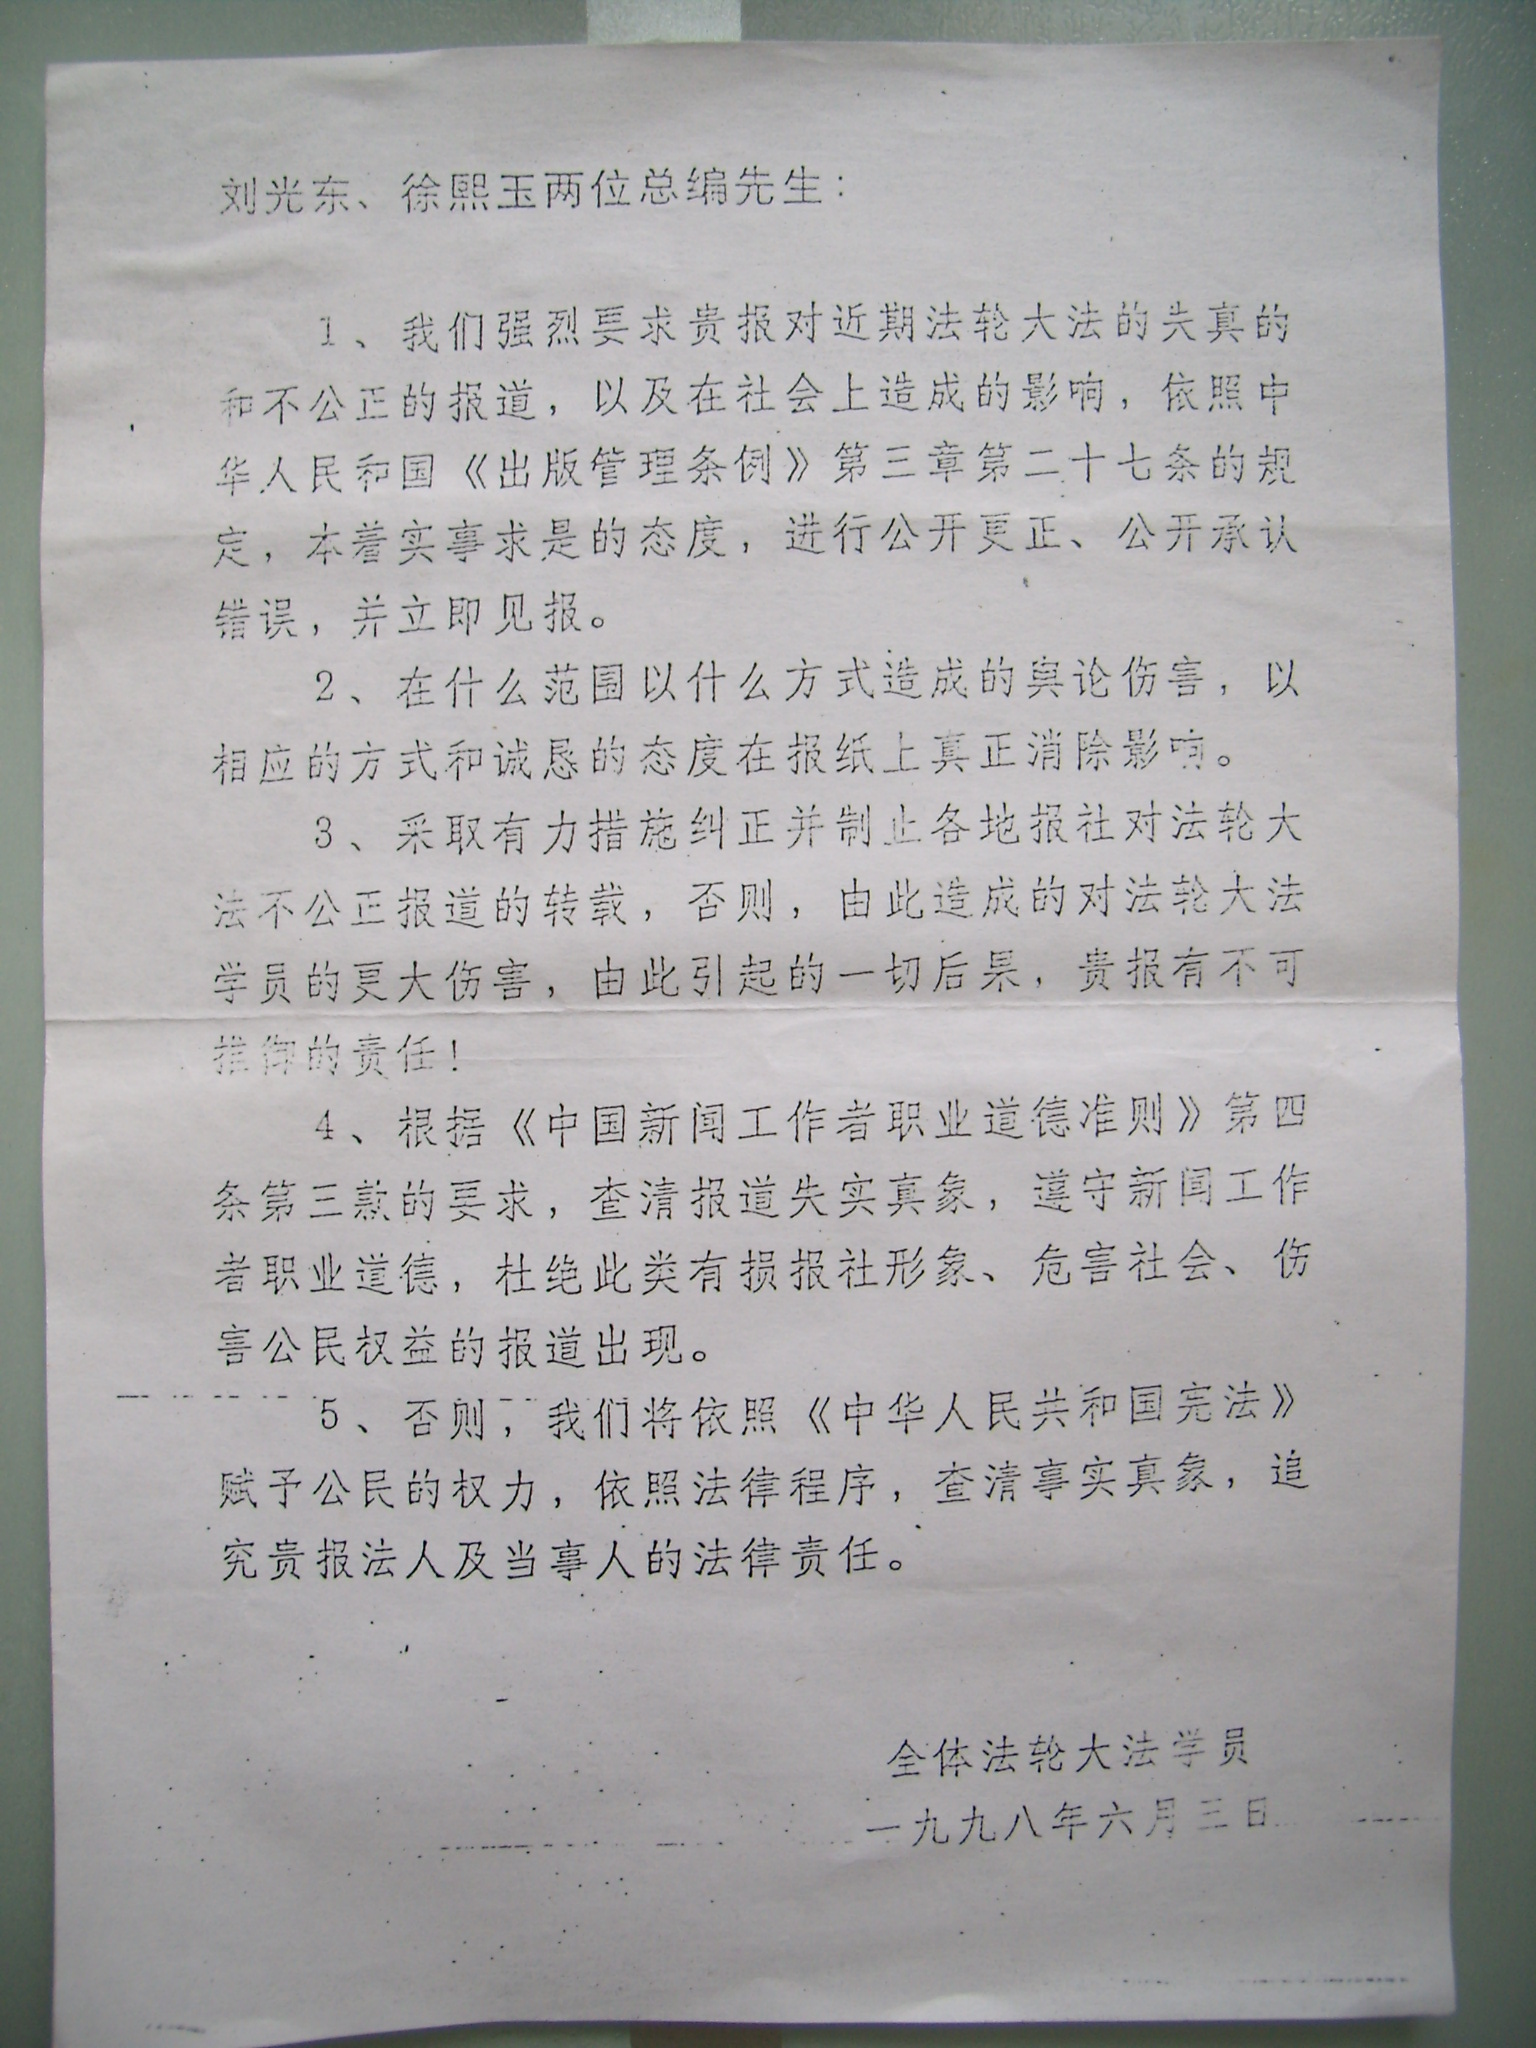 刘光东、徐熙玉两位总编先生：
1、我们强烈要求贵报对近期法轮大法的失真的
和不公正的报道，以及在社会上造成的影响，依照中
华人民和国《出版管理条例》第三章第二十七条的规
定，本着实事求是的态度，进行公开更正、公开承认
错误，并立即见报。
2、在什么范围以什么方式造成的舆论伤害，以
相应的方式和诚恳的态度在报纸上真正消除影响。
3、采取有力措施纠正并制止各地报社对法轮大
法不公正报道的转载，否则，由此造成的对法轮大法
学员的更大伤害，由此引起的一切后果，贵报有不可
推御的责任！
4、根据《中国新闻工作者职业道德准则》第四
条第三款的要求，查清报道失实真象，遵守新闻工作
者职业道德，杜绝此类有损报社形象、危害社会、伤
害公民权益的报道出现。
5、否则，我们将依照《中华人民共和国宪法》
赋予公民的权力，依照法律程序，查清事实真象，追
究贵报法人及当事人的法律责任。
全体法轮大法学员
一九九八年六月三日